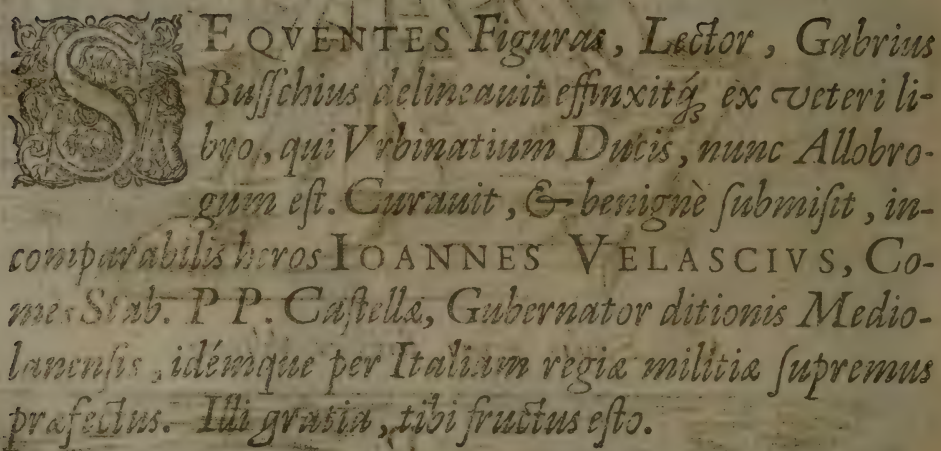 SEQVENTES Figuras, Lector, Gabrius
Busſchius delineauit effinxitq́ꝫ ex veteri li-
bro, qui Vrbinatium Ducis, nunc Allobro-
gum eſt. Curauit, & benignè ſubmiſit, in-
comparabilis heros IOANNES VELASCIVS, Co-
mes Stab. P P. Caſtellæ, Gubernator ditionis Medio-
lanenſis, idémque per Italiam regiæ militiæ ſupremus
præfectus. Illi gratia, tibi fructus eſto.